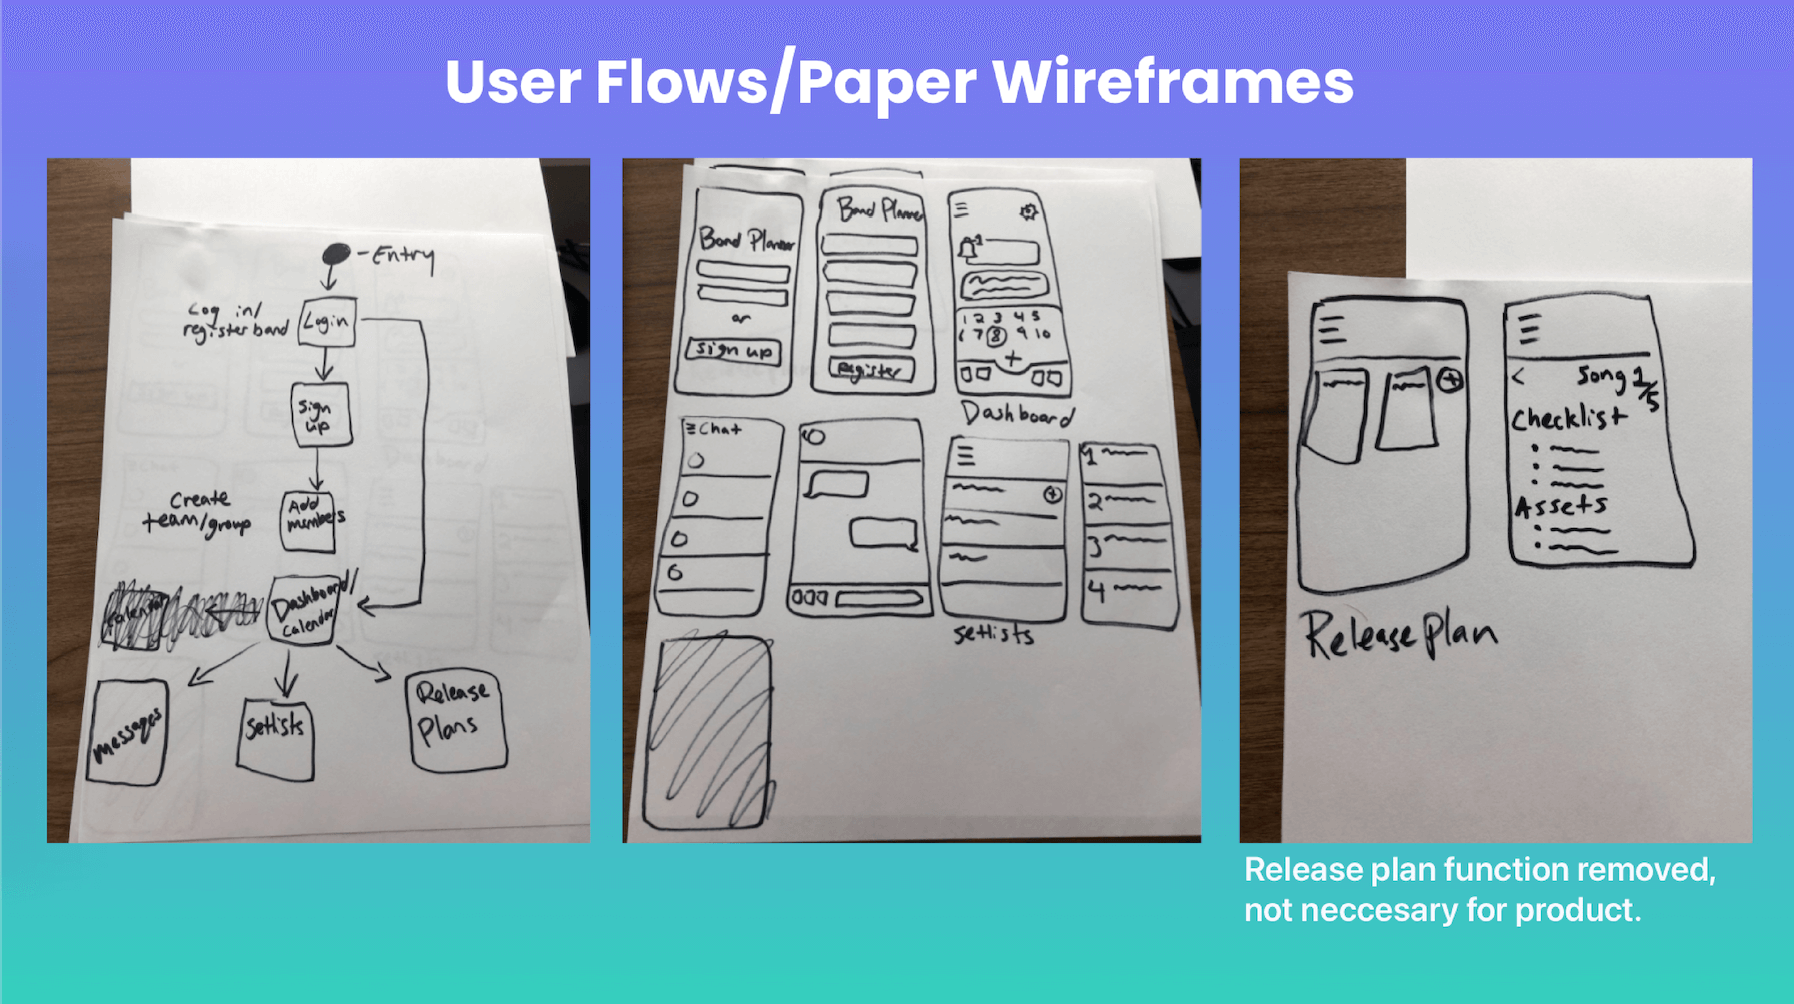 User Flows/Paper Wireframes
-Entry
Log in/
register band
Login
Sign
up
Create
team/group
Add
members
Calendar
Dashboard/
Calendar
messages
Setlists
Release
Plans
Band Planner
or
sign up
Band Planner
register
1
1 2 3 4 5
6 7 8 9 10
+
Dashboard
Chat
setlists
1
2
3
4
<
Song 1/5
Checklist
Assets
Release Plan
Release plan function removed,
not neccesary for product.